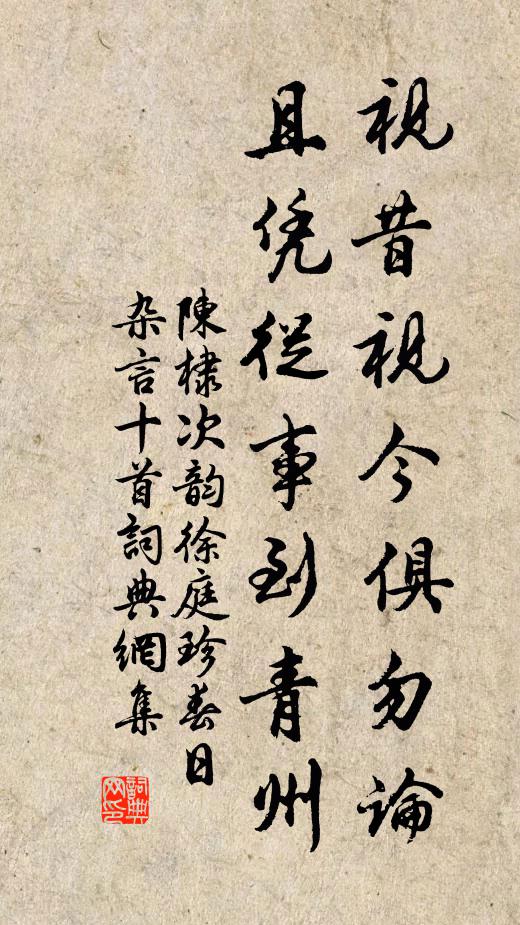 視昔視今俱勿論
且凭從事到青州
陳棣次韵徐庭珍春日
杂言十首詞典網集
詞典网印